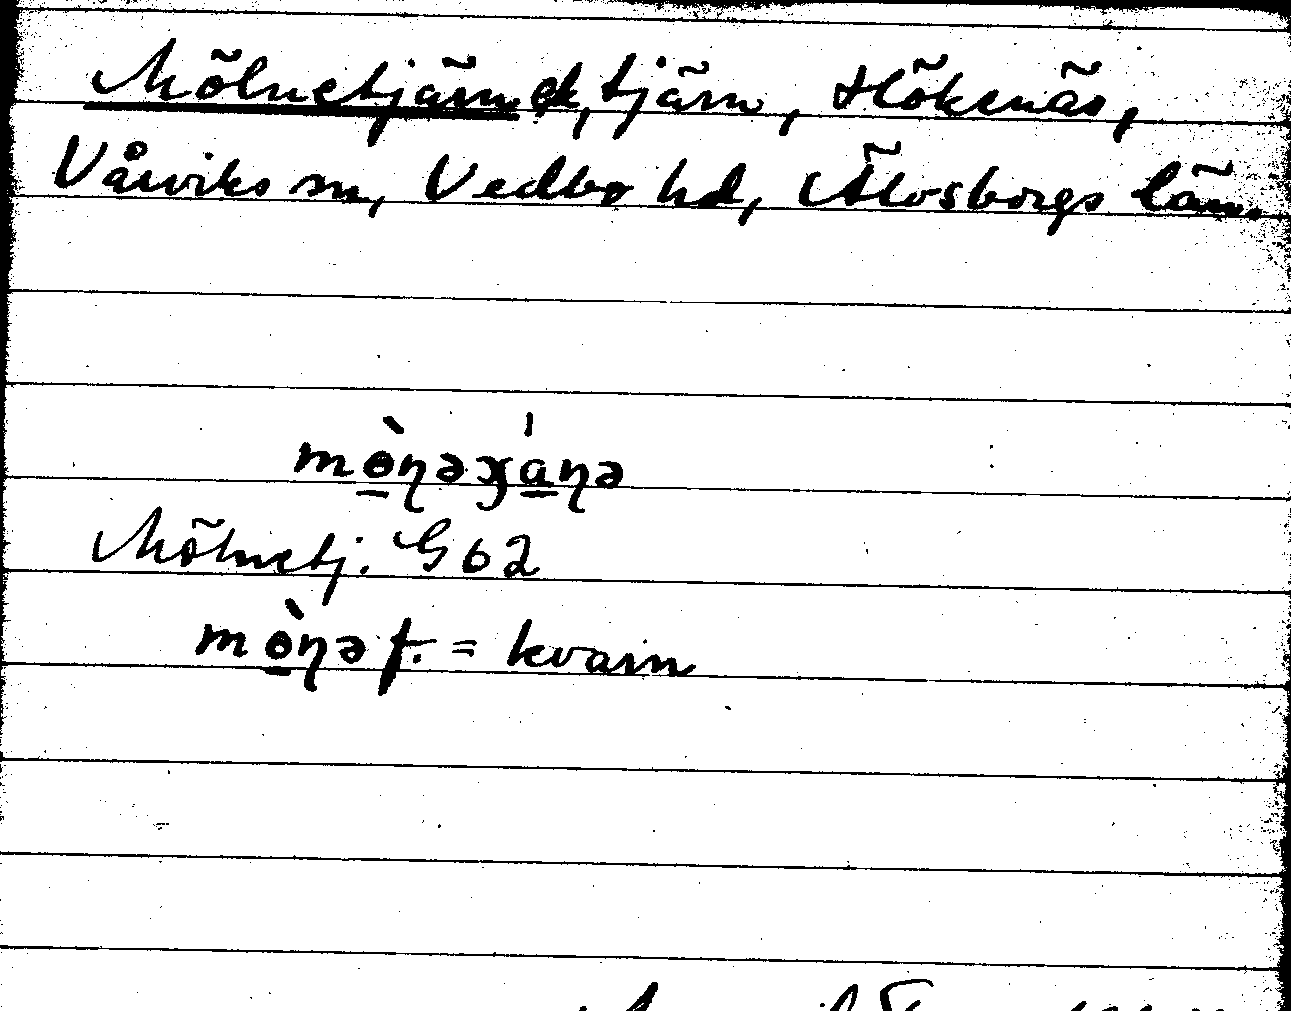 Mölnetjärn ek, tjärn, Höksnäs,
Vårviks sn, Vedbo hd, Älvsborgs län.
mò̱ɳəɣa̱ɳə
Mölnetj. G 62
mò̱ɳə f. = kvarn